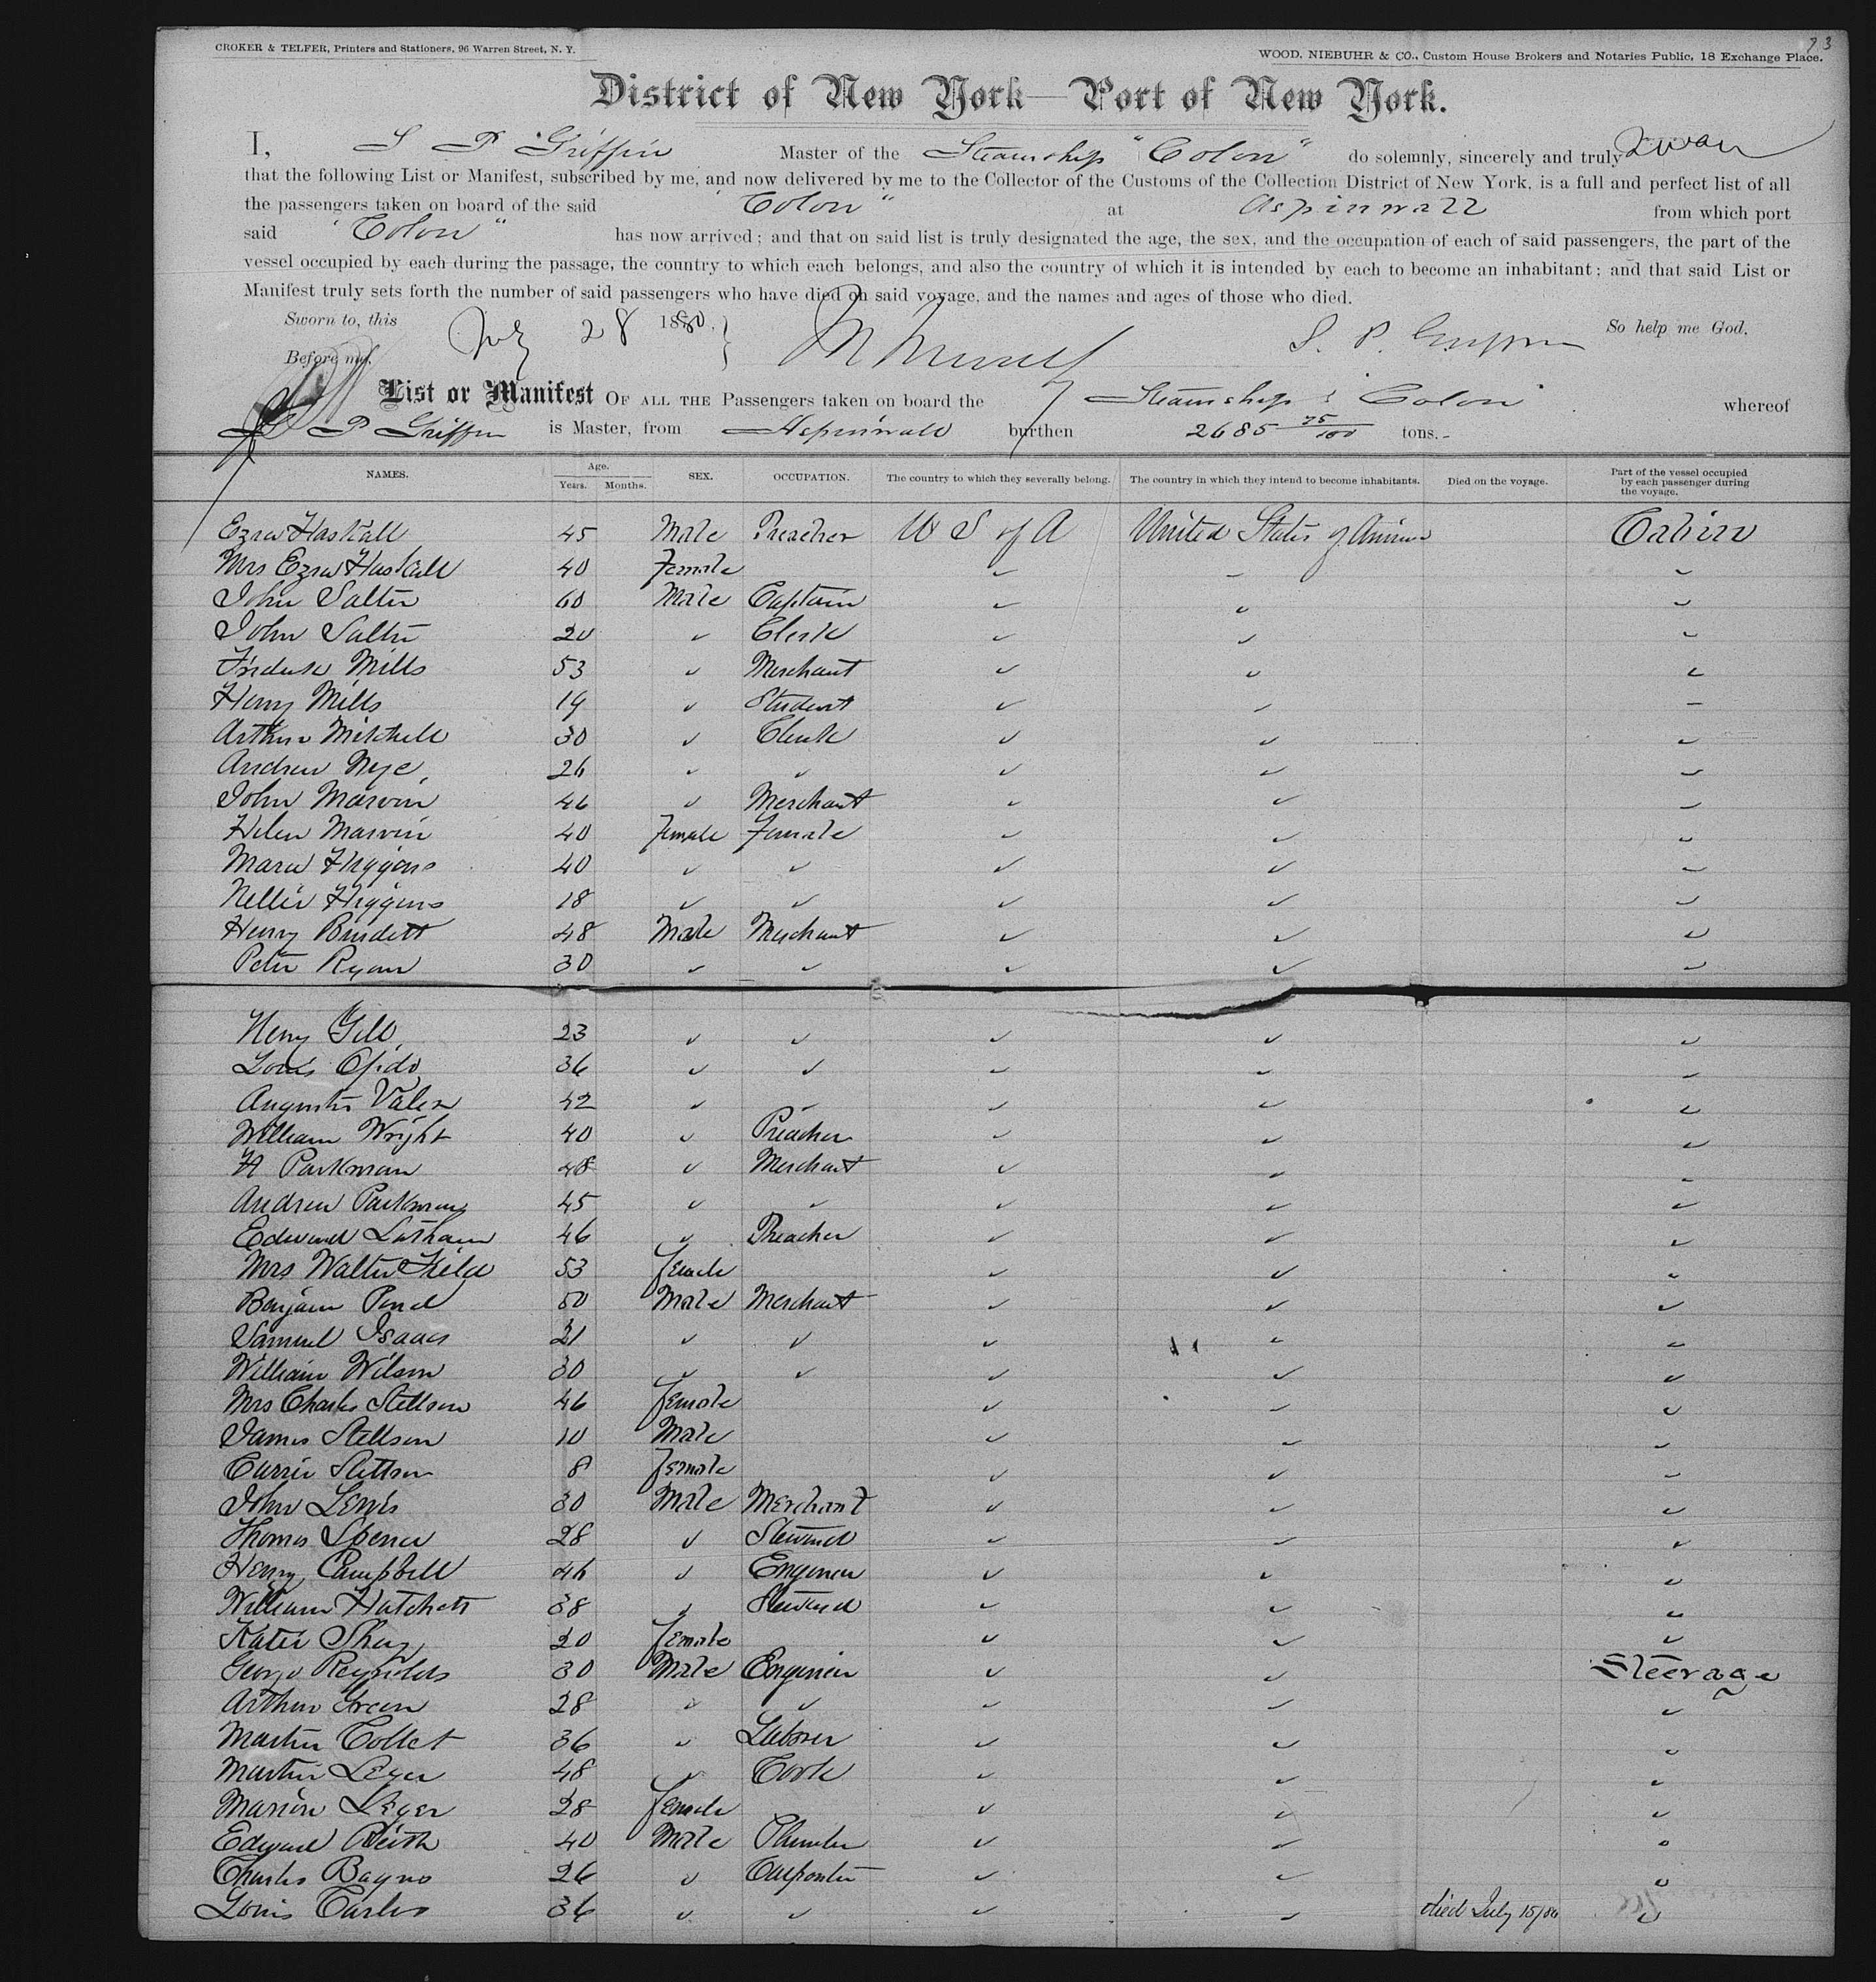 73
CROKER & TELFER, Printers and Stationers, 96 Warren Street, N. Y.
WOOD, NIEBUHR & CO., Custom House Brokers and Notaries Public, 18 Exchange Place.
District of New York—Port of New York.
I, S P Griffin Master of the Steamship "Colon" do solemnly, sincerely and truly swear
that the following List or Manifest, subscribed by me, and now delivered by me to the Collector of the Customs of the Collection District of New York, is a full and perfect list of all
the passengers taken on board of the said "Colon" at Aspinwall from which port
said "Colon" has now arrived; and that on said list is truly designated the age, the sex, and the occupation of each of said passengers, the part of the
vessel occupied by each during the passage, the country to which each belongs, and also the country of which it is intended by each to become an inhabitant; and that said List or
Manifest truly sets forth the number of said passengers who have died on said voyage, and the names and ages of those who died.
Sworn to, this July 28 1880. So help me God.
Before me, S. P. Griffin
List or Manifest OF ALL THE Passengers taken on board the Steamship Colon whereof
S P Griffin is Master, from Aspinwall burthen 2685 75/100 tons.
NAMES. Age. Years. Months. SEX. OCCUPATION. The country to which they severally belong. The country in which they intend to become inhabitants. Died on the voyage. Part of the vessel occupied by each passenger during the voyage.
Ezra Haskall 45 Male Preacher U S of A United States of America Cabin
Mrs Ezra Haskall 40 Female
John Salter 60 Male Captain
John Salter 20 Clerk
Frederick Mills 53 Merchant
Henry Mills 19 Student
Arthur Mitchell 30 Clerk
Andrew Nye 26
John Marvin 46 Merchant
Helen Marvin 40 Female Female
Maria Higgins 40
Nellie Higgins 18
Henry Burdett 48 Male Merchant
Peter Ryan 30
Henry Gill 23
Louis 36
42
William Wright 40 Preacher
H Parkman 48 Merchant
Andrew Parkman 45
Edward Latham 46 Preacher
Mrs Walter Field 53 female
Benjamin Pond 50 Male Merchant
Samuel Isaacs 21
William Wilson 30
Mrs Charles Stettson 46 female
James Stettson 10 Male
Carrie Stettson 8 female
John Lewis 30 Male Merchant
Thomas Spence 28 Steward
Henry Campbell 46 Engineer
William Hatchett 38 Steward
Katie Shay 20 female
George Reynolds 30 Male Engineer Steerage
Arthur Green 28
Martin Collet 36 Laborer
Martin Leger 48 Cook
Marion Leger 28 female
Edward Keith 40 Male Plumber
Charles Bayno 26 Carpenter
Louis Carlos 36 died July 15/80